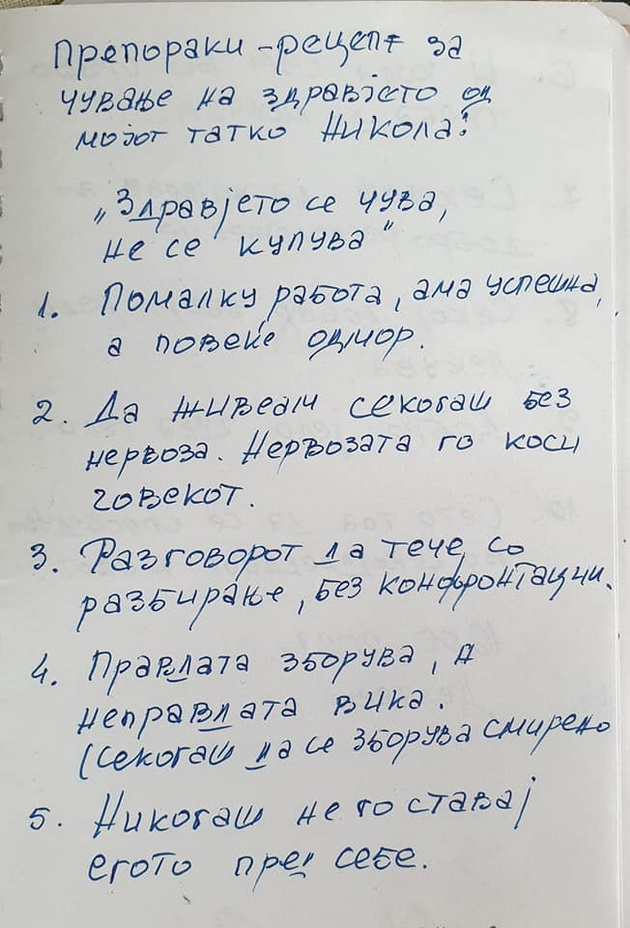 Препораки-рецепт за
чување на здравјето од
мојот татко Никола:
„Здравјето се чува,
не се купува“
1. Помалку работа, ама успешна,
а повеќе одмор.
2. Да живееш секогаш без
нервоза. Нервозата го коси
човекот.
3. Разговорот да тече со
разбирање, без конфронтации.
4. Правдата зборува, а
неправдата вика.
(секогаш да се зборува смирено
5. Никогаш не го ставај
егото пред себе.